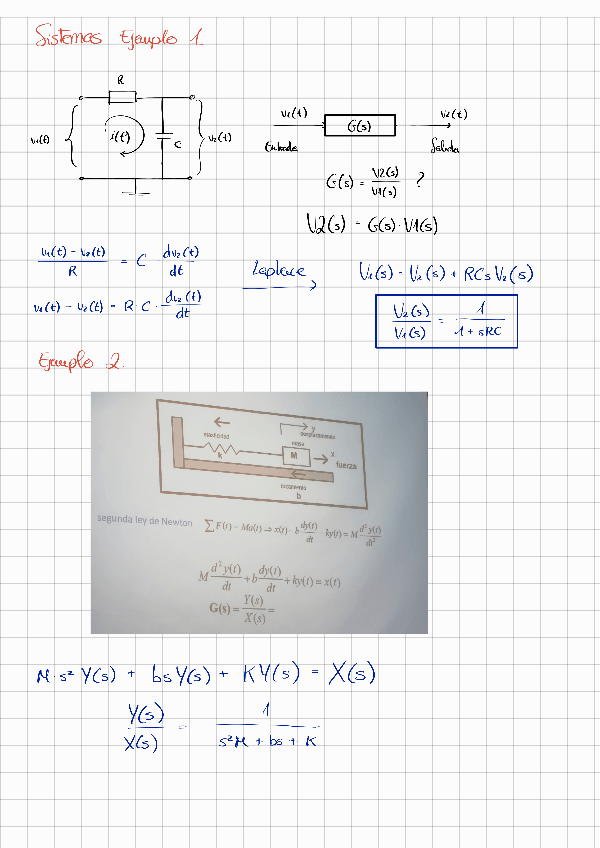 Sistemas Ejemplo 1
R
v₁(t) i(t) C v₂(t)
v₁(t) G(s) v₂(t)
Entrada Salida
G(s) = V2(s)/V1(s) ?
V2(s) = G(s)·V1(s)
(v₁(t) - v₂(t))/R = C dv₂(t)/dt Laplace V₁(s) - V₂(s) + RCs V₂(s)
v₁(t) - v₂(t) = R·C·dv₂(t)/dt V₂(s)/V₁(s) = 1/(1 + sRC)
Ejemplo 2.
y
elasticidad desplazamiento
masa
k M x
fuerza
rozamiento
b
segunda ley de Newton ∑F(t) = Ma(t) ⇒ x(t) - b dy(t)/dt - ky(t) = M d²y(t)/dt²
M d²y(t)/dt² + b dy(t)/dt + ky(t) = x(t)
G(s) = Y(s)/X(s) =
M·s² Y(s) + bs Y(s) + K Y(s) = X(s)
Y(s)/X(s) = 1/(s²M + bs + K)